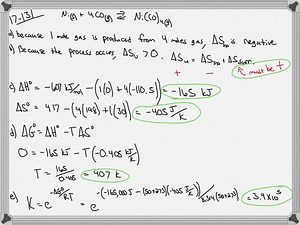 17-131) Ni(s) + 4CO(g) ⇌ Ni(CO)4(g)
a) because 1 mole gas is produced from 4 moles gas, ΔSsys is negative
b) Because the process occurs, ΔSu > 0. ΔSu = ΔSsys + ΔSsurr.
+ - must be +
c) ΔH° = -607 kJ/mol - (1(0) + 4(-110.5)) = -165 kJ
ΔS° = 417 - (4(198) + 1(30)) = -405 J/K
d) ΔG° = ΔH° - TΔS°
0 = -165 kJ - T(-0.405 kJ/K)
T = 165/0.405 = 407 K
e) K = e^(-ΔG°/RT) = e^(-(-165,000 J - (50+273)(-405 J/K))/8.314(50+273)) = 3.4 × 10⁵